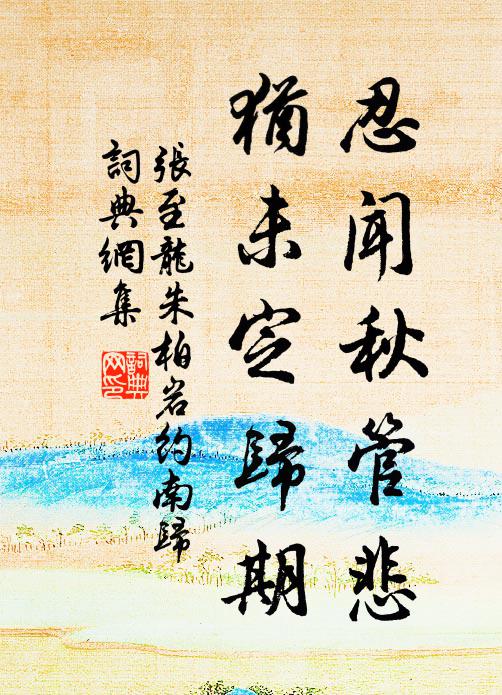 忍聞秋管悲
猶未定歸期
張至龍朱柏岩約南歸
詞典網集
詞典
网印